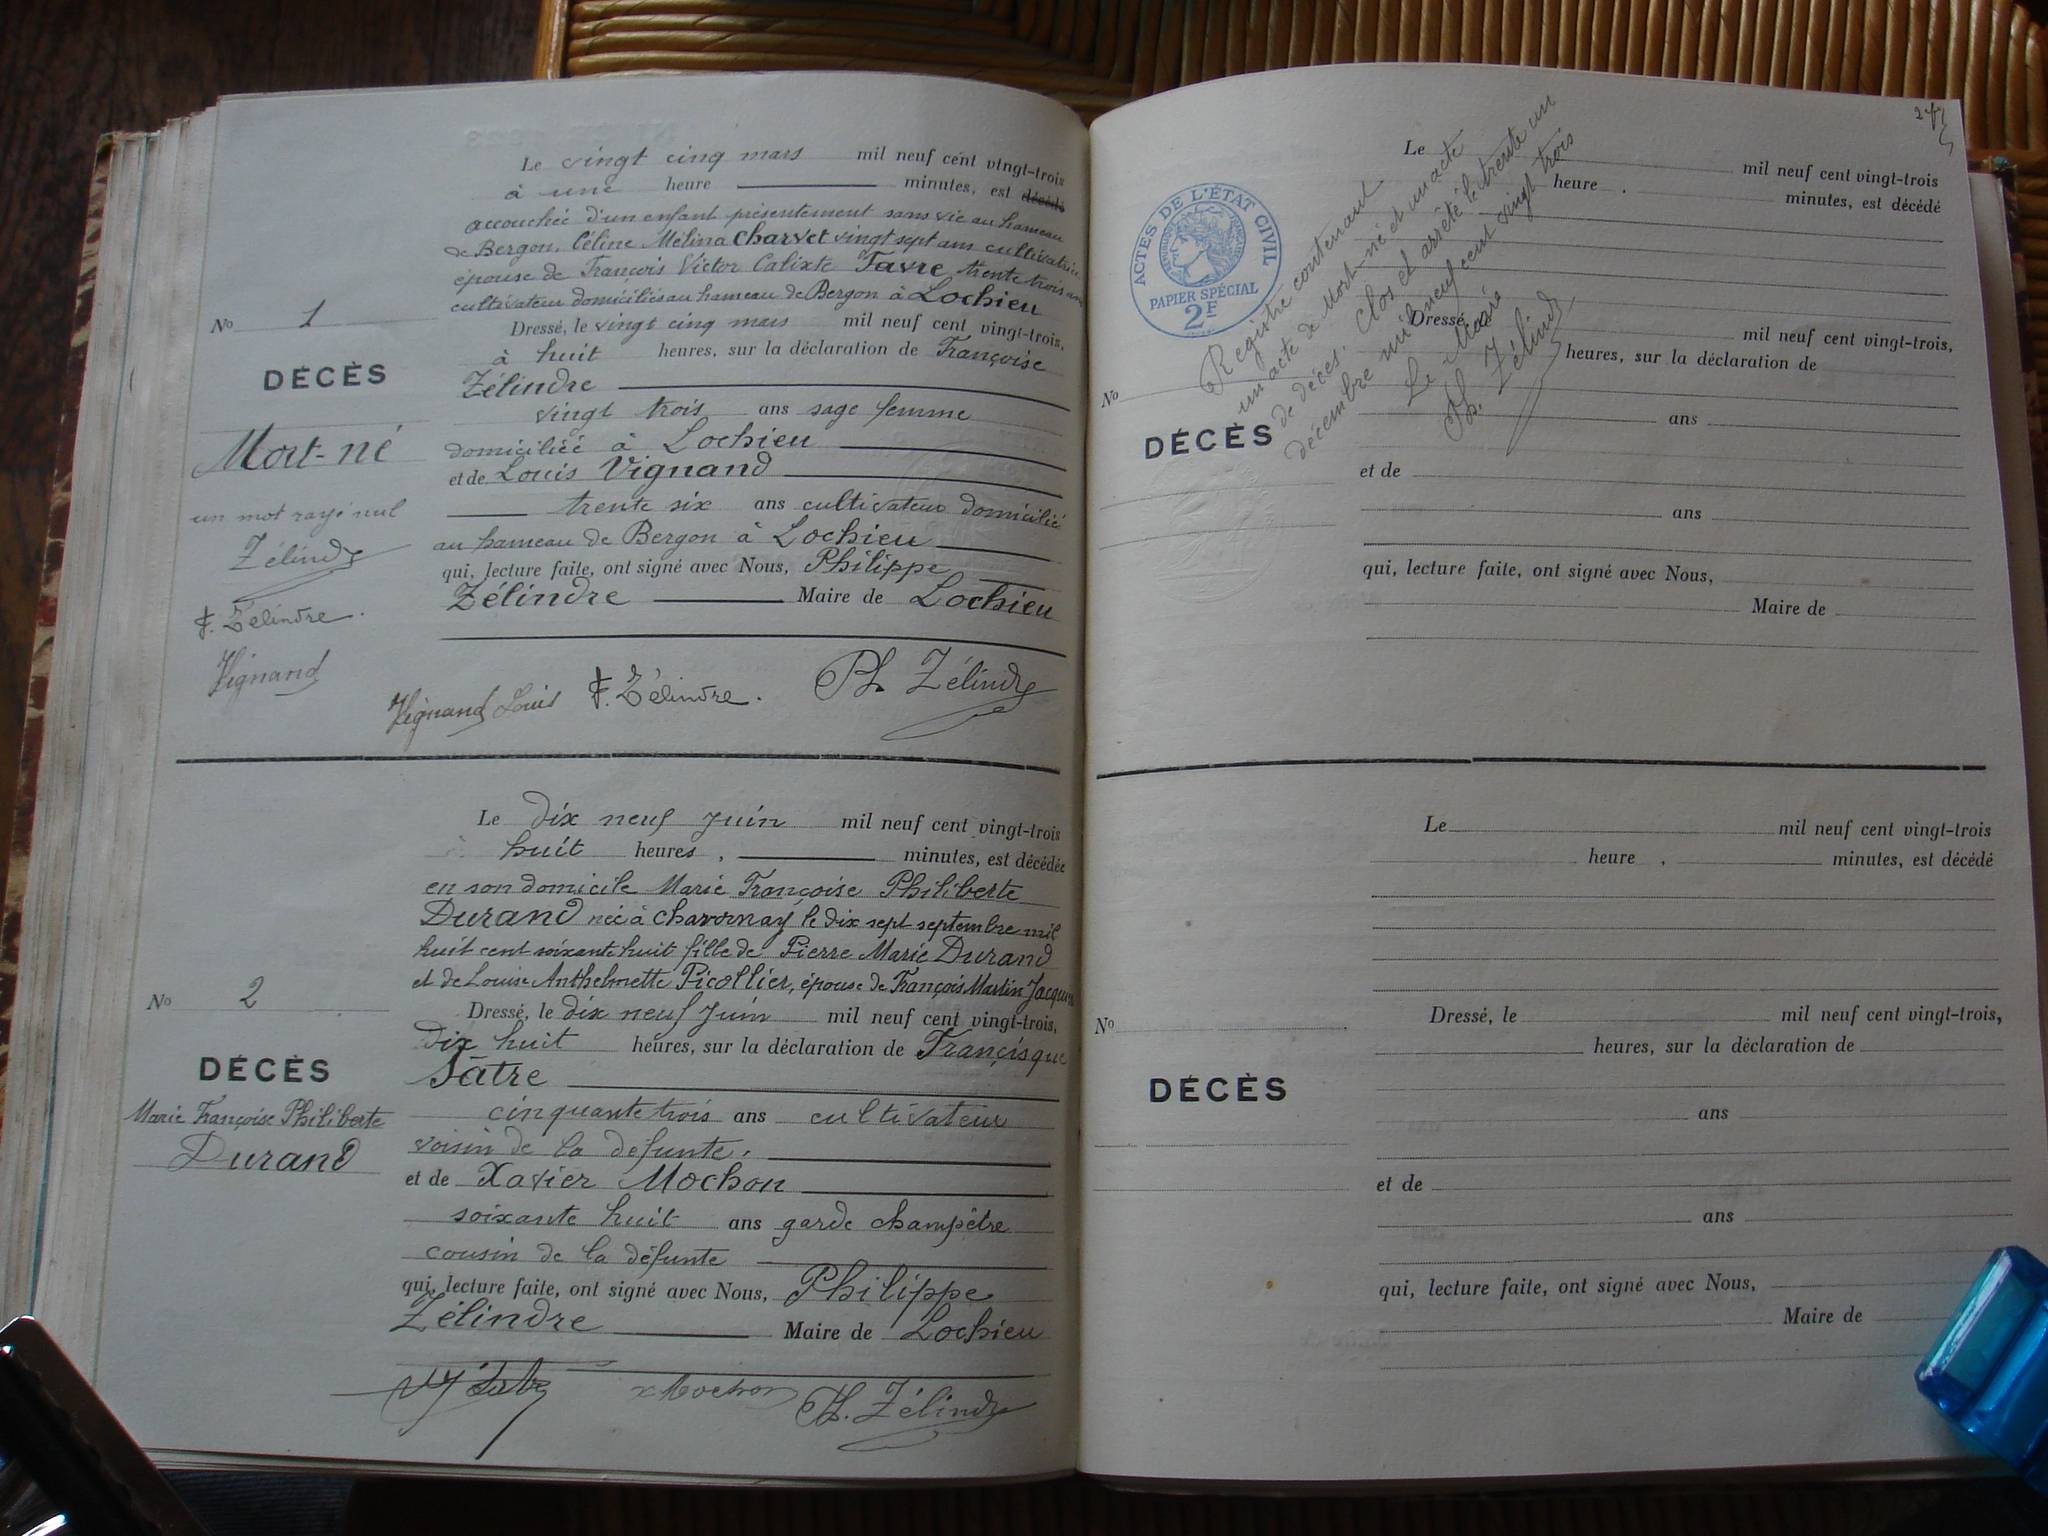 Le vingt cinq mars mil neuf cent vingt-trois
à une heure minutes, est décédé
accouchée d'un enfant présentement sans vie au hameau
de Bergon, Céline Mélina Charvet vingt sept ans cultivatrice
épouse de François Victor Calixte Favre trente trois ans
cultivateur domiciliés au hameau de Bergon à Lochieu
Dressé, le vingt cinq mars mil neuf cent vingt-trois,
à huit heures, sur la déclaration de Françoise
Zélindre
vingt trois ans sage femme
domiciliée à Lochieu
et de Louis Vignand
trente six ans cultivateur domicilié
au hameau de Bergon à Lochieu
qui, lecture faite, ont signé avec Nous, Philippe
Zélindre Maire de Lochieu
No 1
DÉCÈS
Mort-né
un mot rayé nul
Zélindre
F. Zélindre.
Vignand
Vignand Louis F. Zélindre. Ph Zélindre
Le dix neuf juin mil neuf cent vingt-trois
à huit heures, minutes, est décédée
en son domicile Marie Françoise Philiberte
Durand née à Chavornay, le dix sept septembre mil
huit cent soixante huit fille de Pierre Marie Durand
et de Louise Anthelmette Picollier, épouse de François Martin Jacquin
Dressé, le dix neuf juin mil neuf cent vingt-trois,
dix huit heures, sur la déclaration de Francisque
Satre
cinquante trois ans cultivateur
voisin de la défunte.
et de Xavier Mochon
soixante huit ans garde champêtre
cousin de la défunte
qui, lecture faite, ont signé avec Nous, Philippe
Zélindre Maire de Lochieu
No 2
DÉCÈS
Marie Françoise Philiberte
Durand
x Mochon Ph. Zélindre
ACTES DE L'ÉTAT CIVIL
PAPIER SPÉCIAL
2F
Registre contenant
un acte de Mort-né et un acte
de décès. Clos et arrêté le trente un
décembre mil neuf cent vingt trois
Le Maire
Ph. Zélindre
Le mil neuf cent vingt-trois
heure . minutes, est décédé
Dressé, le mil neuf cent vingt-trois,
heures, sur la déclaration de
No
DÉCÈS
ans
et de
ans
qui, lecture faite, ont signé avec Nous,
Maire de
Le mil neuf cent vingt-trois
heure , minutes, est décédé
Dressé, le mil neuf cent vingt-trois,
No
heures, sur la déclaration de
DÉCÈS
ans
et de
ans
qui, lecture faite, ont signé avec Nous,
Maire de